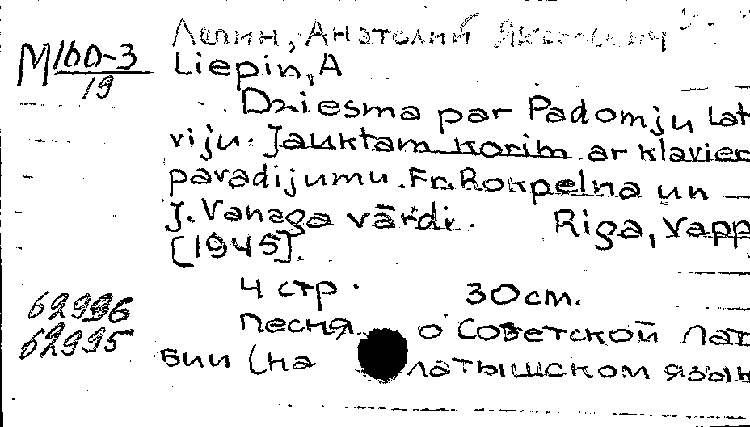 Лепин, Анатолий Яковлевич
М160-3
19
Liepin, A
Dziesma par Padomju Lat
viju. Jauktam korim ar klavier
pavadijumu. Fr. Rokpelna un
J. Vanaga vārdi. Riga, Vapp
[1945].
4 стр. 30 cm.
62996
Песня о Советской Лат
62995
вии (на латышском язык